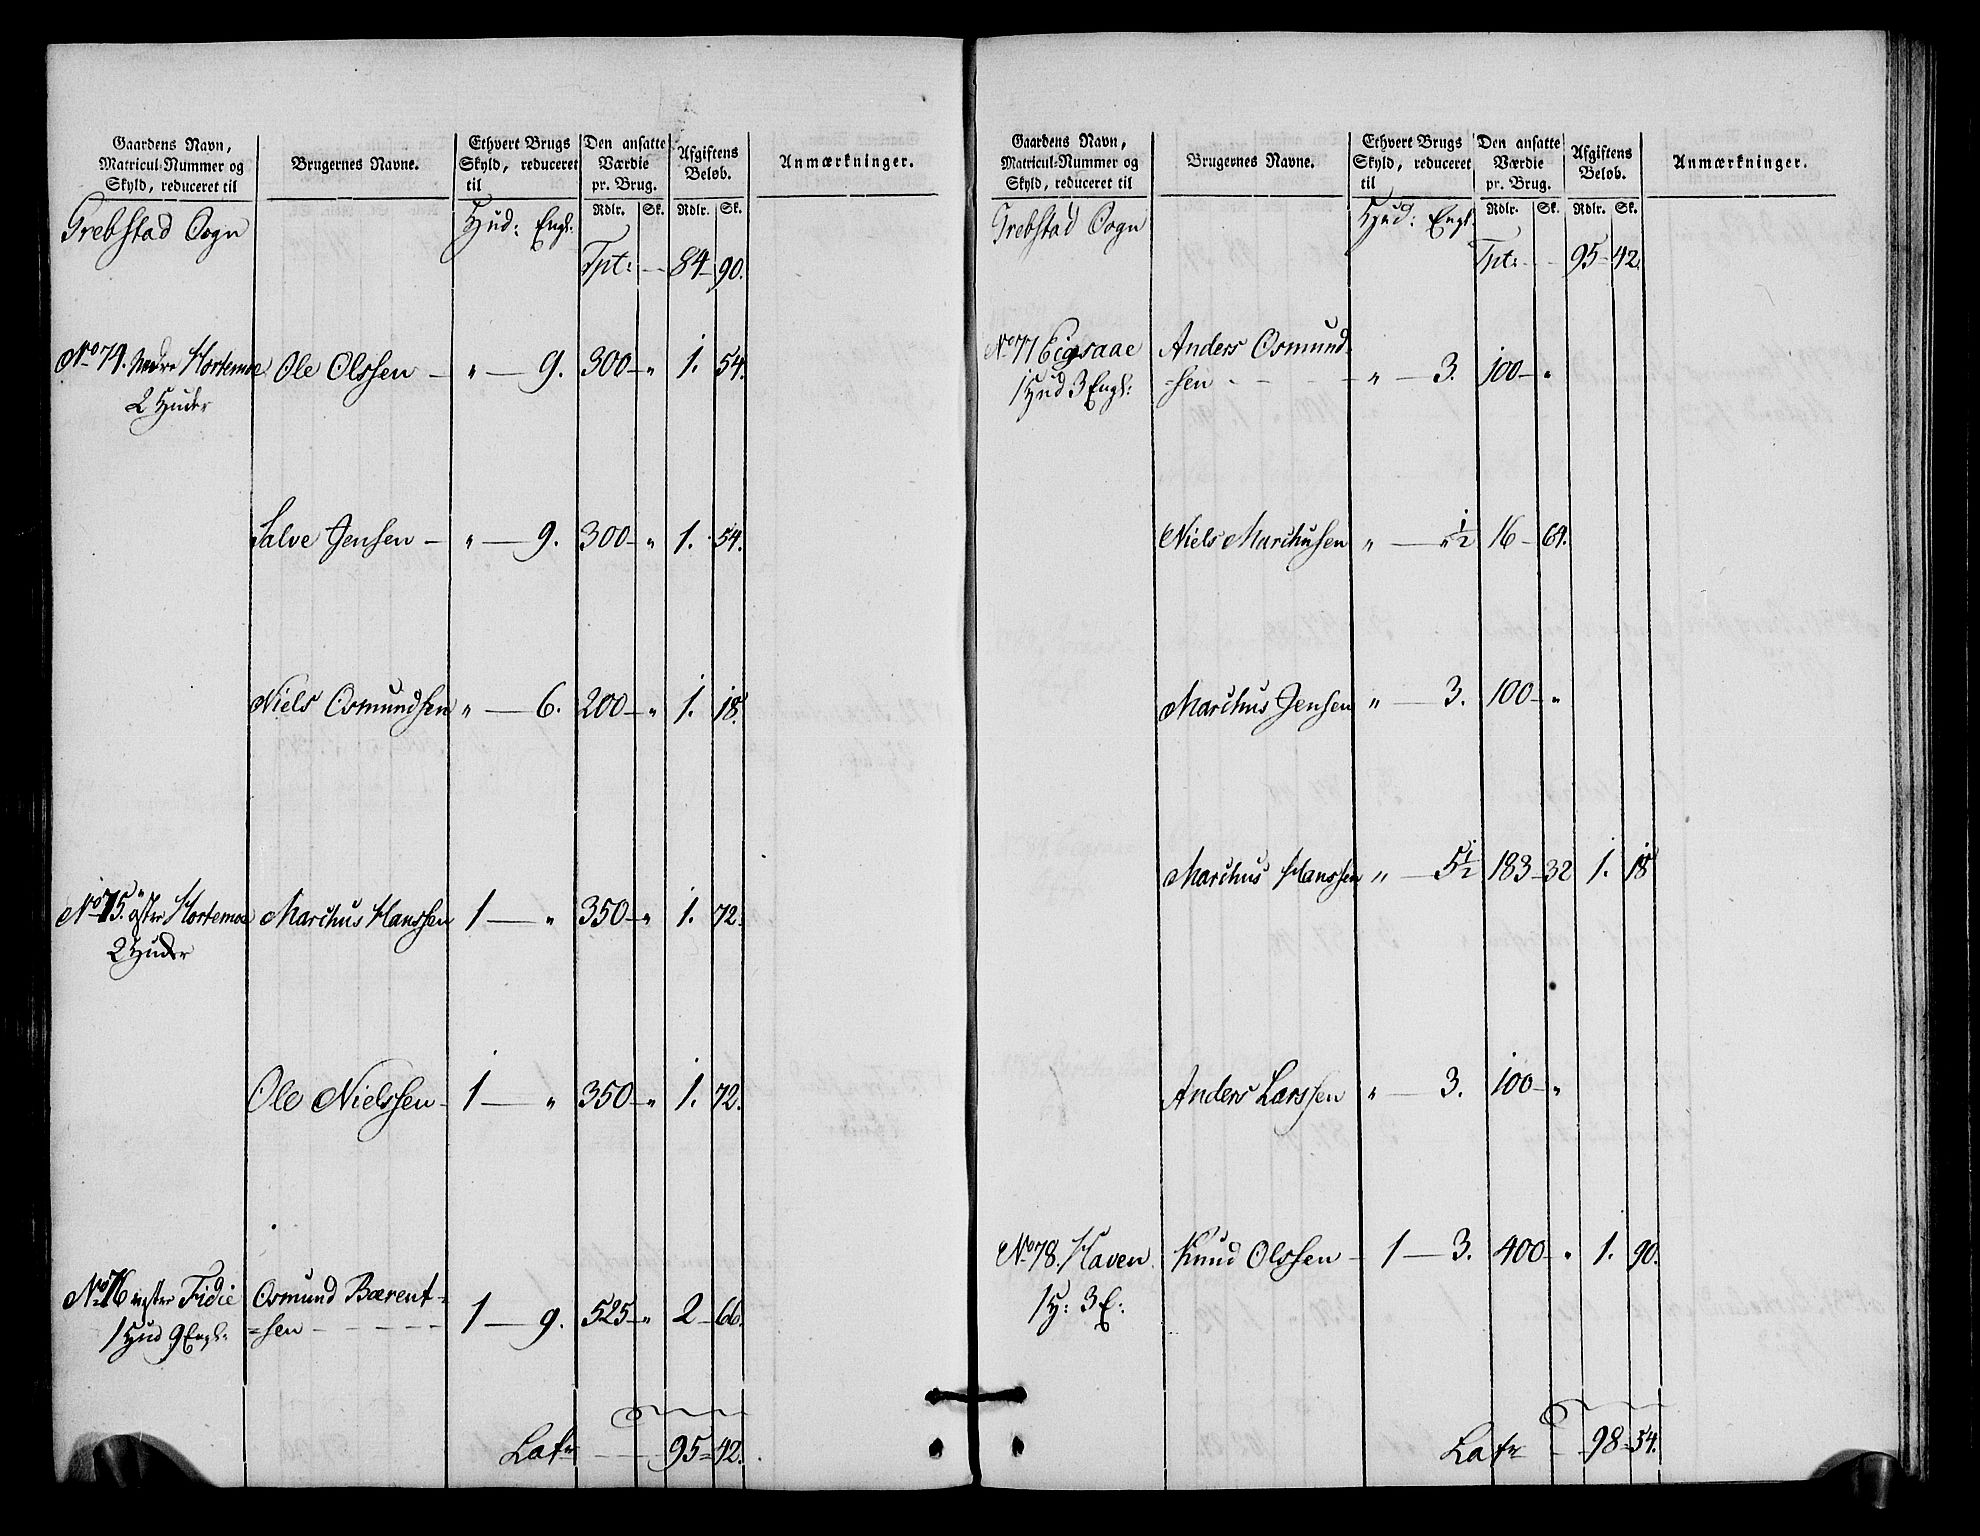 Gaardens Navn,
Matricul-Nummer og
Skyld, reduceret til
Brugernes Navne.
Ethvert Brugs
Skyld, reduceret
til
Den ansatte
Værdie
pr. Brug.
Afgiftens
Beløb.
Anmærkninger.
Rdlr. Sk. Rdlr. Sk.
Grebstad Sogn Hud: Engl:
Tpt: 84 90.
No 74. Nedre Hortemoe Ole Olssen " 9. 300 " 1. 54.
2 Huder
Salve Jensen " 9. 300 " 1. 54.
Niels Osmundsen " 6. 200 " 1. 18.
No 75. øster Hortemoe Marchus Hanssen 1 " 350 " 1. 72.
2 Huder
Ole Nielssen 1 " 350 " 1. 72.
No 76 vester Fidie Osmund Bærent-
1 Hud 9 Engl: -sen 1 9. 525 " 2 66.
Latr 95 42.
Gaardens Navn,
Matricul-Nummer og
Skyld, reduceret til
Brugernes Navne.
Ethvert Brugs
Skyld, reduceret
til
Den ansatte
Værdie
pr. Brug.
Afgiftens
Beløb.
Anmærkninger.
Rdlr. Sk. Rdlr. Sk.
Grebstad Sogn Hud: Engl:
Tpt: 95 42.
No 77 Eigsaae Anders Osmund-
1 Hud 3 Engl: -sen " 3. 100 "
Niels Marchusen " " 1/2 16 64.
Marchus Jensen " 3. 100 "
Marchus Hanssen " 5 1/2 183 32 1. 18
Anders Larssen " 3. 100 "
No 78. Haven Knud Olssen 1 3. 400 " 1. 90.
1 H: 3 E:
Latr 98 54.